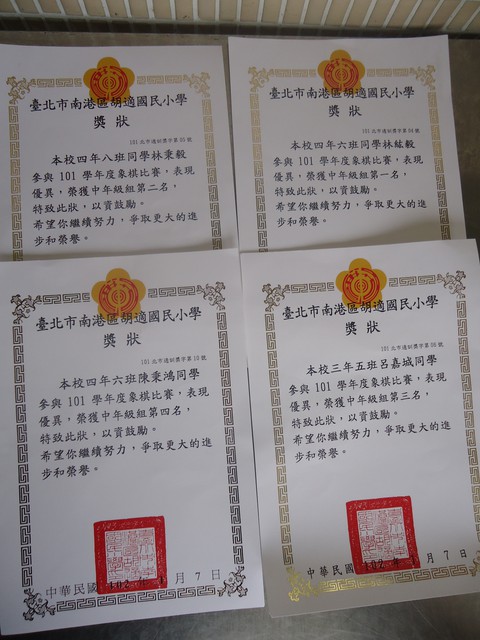 臺北市南港區胡適國民小學
獎狀
101 北市適訓獎字第 05 號
本校四年八班同學林秉毅
參與 101 學年度象棋比賽，表現
優異，榮獲中年級組第二名，
特致此狀，以資鼓勵。
希望你繼續努力，爭取更大的進
步和榮譽。
臺北市南港區胡適國民小學
獎狀
101 北市適訓獎字第 04 號
本校四年六班同學林紘毅
參與 101 學年度象棋比賽，表現
優異，榮獲中年級組第一名，
特致此狀，以資鼓勵。
希望你繼續努力，爭取更大的進
步和榮譽。
臺北市南港區胡適國民小學
獎狀
101 北市適訓獎字第 10 號
本校四年六班陳秉鴻同學
參與 101 學年度象棋比賽，表現
優異，榮獲中年級組第四名，
特致此狀，以資鼓勵。
希望你繼續努力，爭取更大的進
步和榮譽。
中華民國 102 年 1 月 7 日
臺北市南港區胡適國民小學
獎狀
101 北市適訓獎字第 06 號
本校三年五班呂嘉城同學
參與 101 學年度象棋比賽，表現
優異，榮獲中年級組第三名，
特致此狀，以資鼓勵。
希望你繼續努力，爭取更大的進
步和榮譽。
中華民國 102 年 1 月 7 日